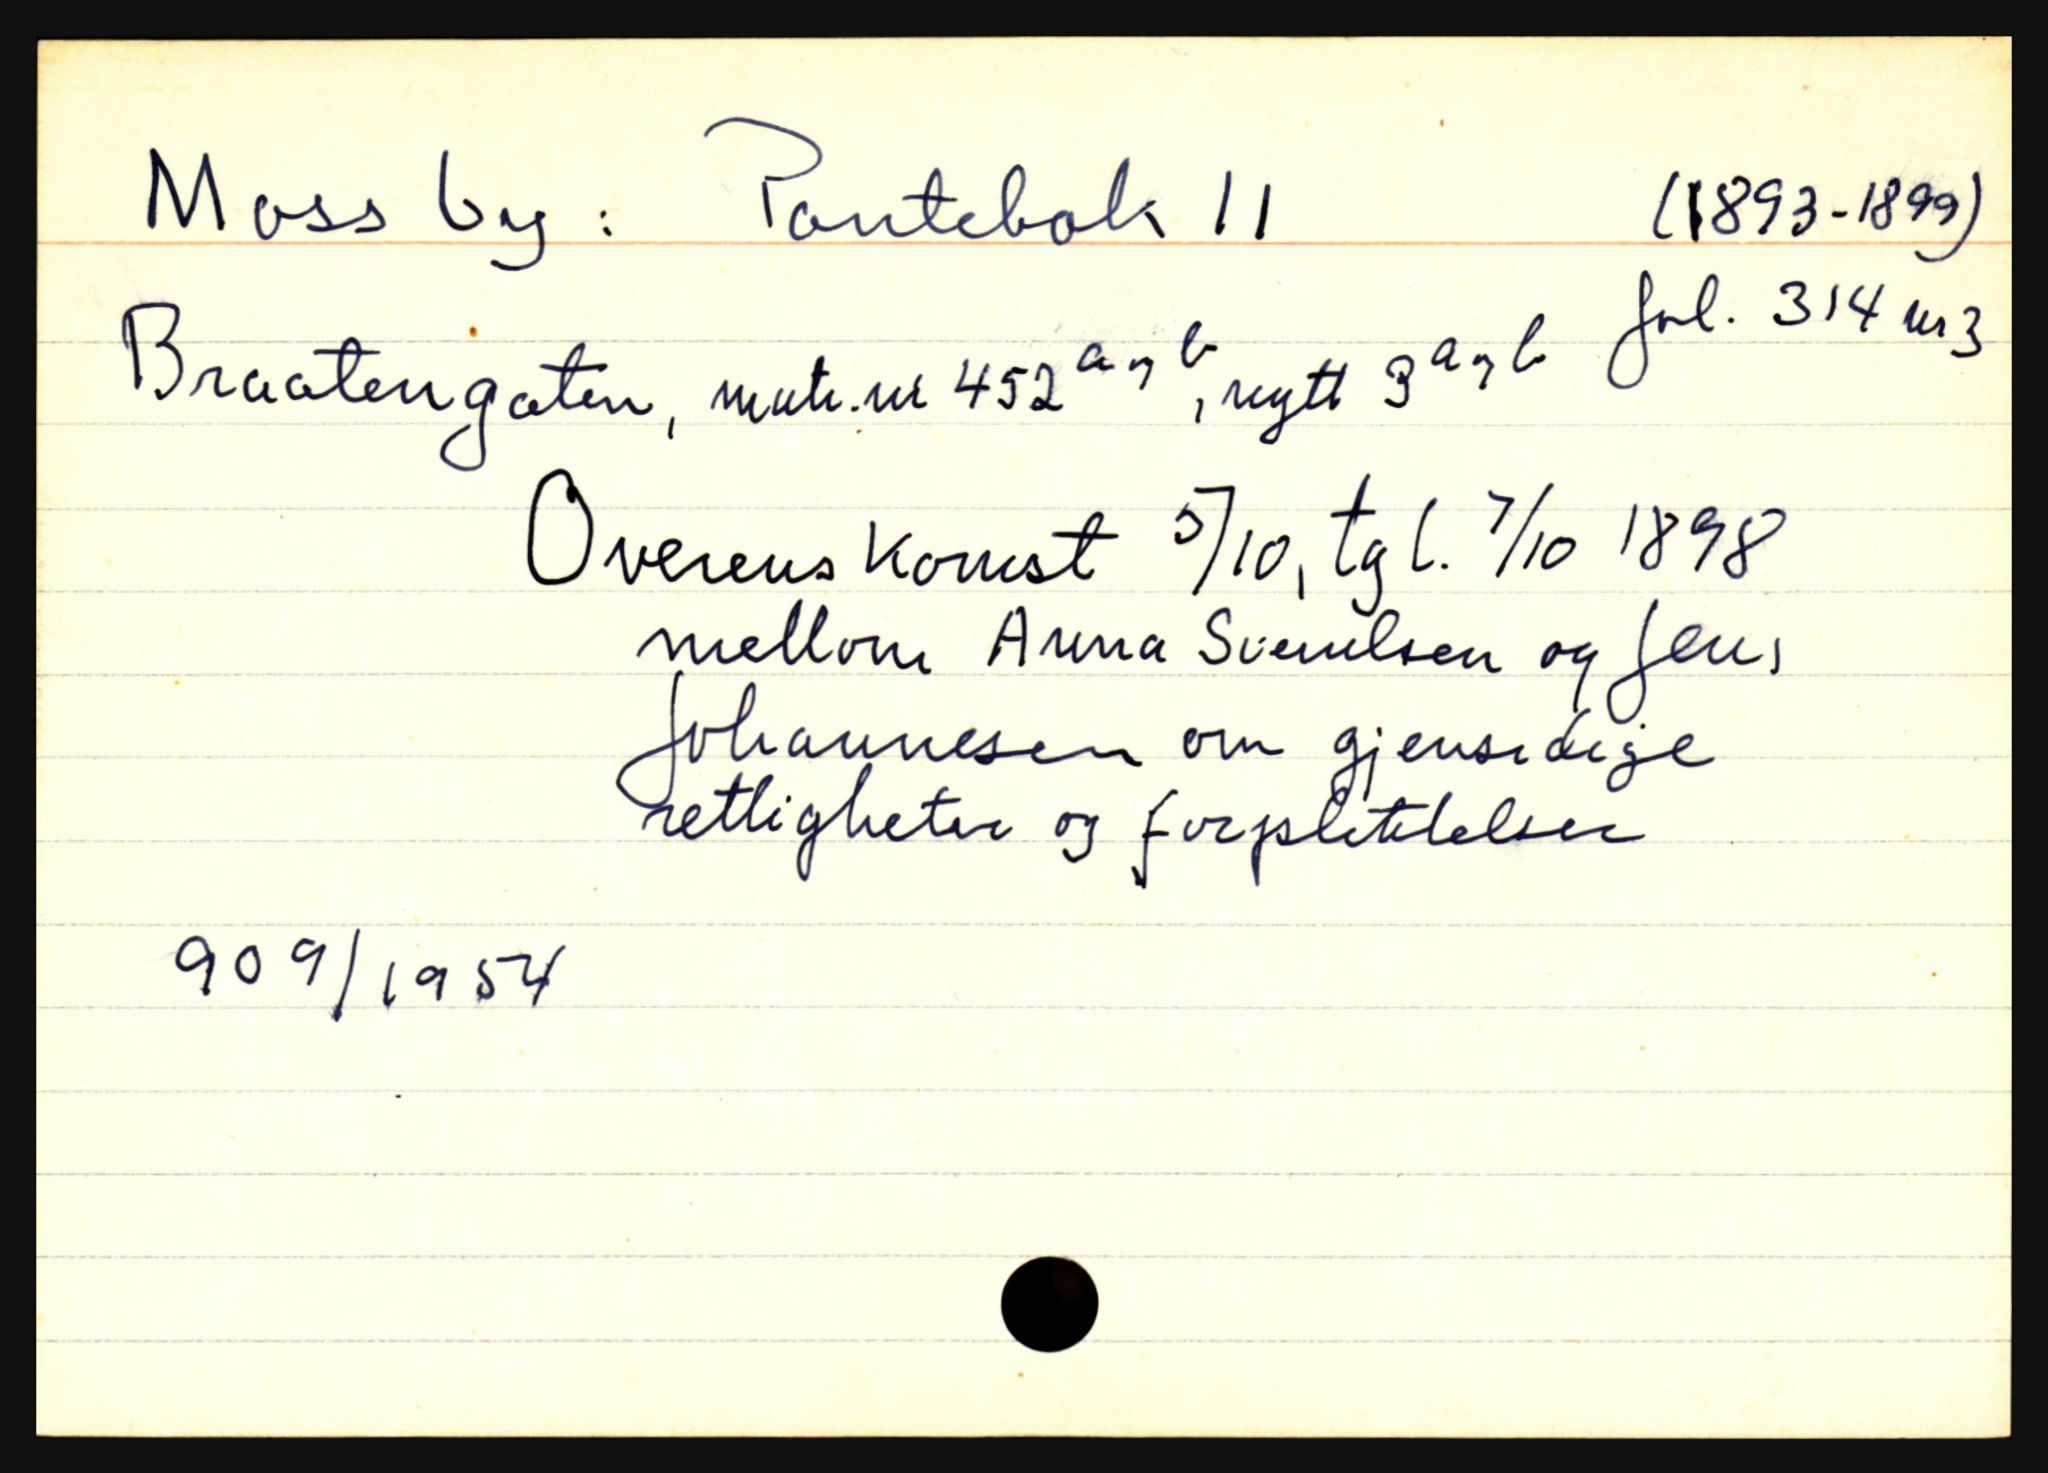 Moss by: Pantebok 11 (1893-1899)
fol. 314 nr 3
Braatengaten, matr.nr 452 a og b, nytt 3 a og b
Overenskomst 5/10, tgl. 7/10 1898
mellom Anna Svendsen og Jens
Johannesen om gjensidige
rettigheter og forpliktelser
909/1954